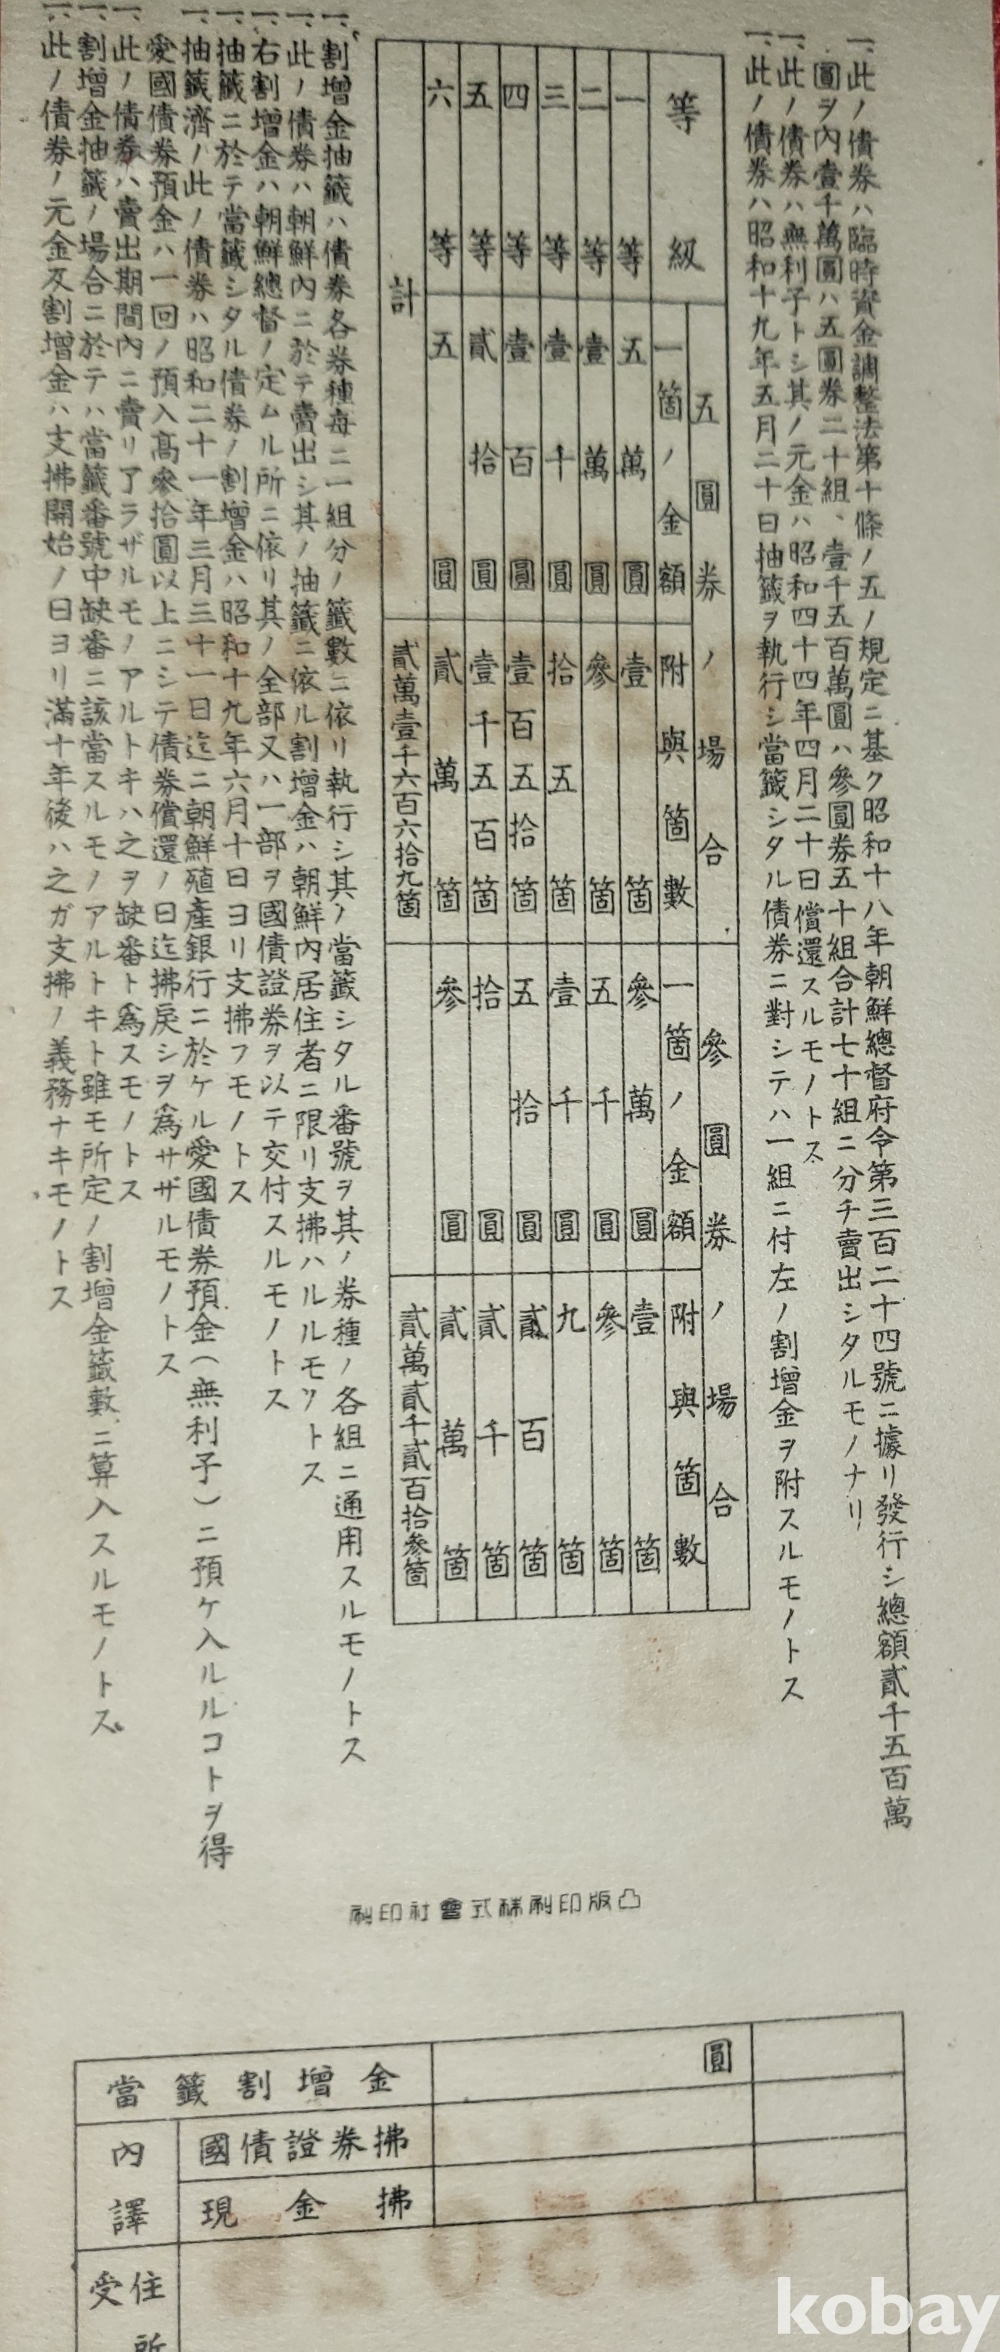 一、此ノ債券ハ臨時資金調整法第十條ノ五ノ規定ニ基ク昭和十八年朝鮮總督府令第三百二十四號ニ據リ發行シ總額貳千五百萬
圓ヲ內壹千萬圓ハ五圓券二十組、壹千五百萬圓ハ參圓券五十組合計七十組ニ分チ賣出シタルモノナリ
一、此ノ債券ハ無利子トシ其ノ元金ハ昭和四十四年四月二十日償還スルモノトス
一、此ノ債券ハ昭和十九年五月二十日抽籤ヲ執行シ當籤シタル債券ニ對シテハ一組ニ付左ノ割增金ヲ附スルモノトス
等級 五圓券ノ場合 參圓券ノ場合
一箇ノ金額 附與箇數 一箇ノ金額 附與箇數
一等 五萬圓 壹箇 參萬圓 壹箇
二等 壹萬圓 參箇 五千圓 參箇
三等 壹千圓 拾五箇 壹千圓 九箇
四等 壹百圓 壹百五拾箇 五拾圓 貳百箇
五等 貳拾圓 壹千五百箇 拾圓 貳千箇
六等 五圓 貳萬箇 參圓 貳萬箇
計 貳萬壹千六百六拾九箇 貳萬貳千貳百拾參箇
一、割增金抽籤ハ債券各券種每ニ一組分ノ籤數ニ依リ執行シ其ノ當籤シタル番號ヲ其ノ券種ノ各組ニ通用スルモノトス
一、此ノ債券ハ朝鮮內ニ於テ賣出シ其ノ抽籤ニ依ル割增金ハ朝鮮內居住者ニ限リ支拂ハルルモノトス
一、右割增金ハ朝鮮總督ノ定ムル所ニ依リ其ノ全部又ハ一部ヲ國債證券ヲ以テ交付スルモノトス
一、抽籤ニ於テ當籤シタル債券ノ割增金ハ昭和十九年六月十日ヨリ支拂フモノトス
一、抽籤濟ノ此ノ債券ハ昭和二十一年三月三十一日迄ニ朝鮮殖產銀行ニ於ケル愛國債券預金（無利子）ニ預ケ入ルルコトヲ得
愛國債券預金ハ一回ノ預入高參拾圓以上ニシテ債券償還ノ日迄拂戾シヲ爲サザルモノトス
一、此ノ債券ハ賣出期間內ニ賣リ了ラザルモノアルトキハ之ヲ缺番ト爲スモノトス
一、割增金抽籤ノ場合ニ於テハ當籤番號中缺番ニ該當スルモノアルトキト雖モ所定ノ割增金籤數ニ算入スルモノトス
一、此ノ債券ノ元金及割增金ハ支拂開始ノ日ヨリ滿十年後ハ之ガ支拂ノ義務ナキモノトス
凸版印刷株式會社印刷
當籤割增金 圓
內譯 國債證券拂
現金拂
受 住所
kobay